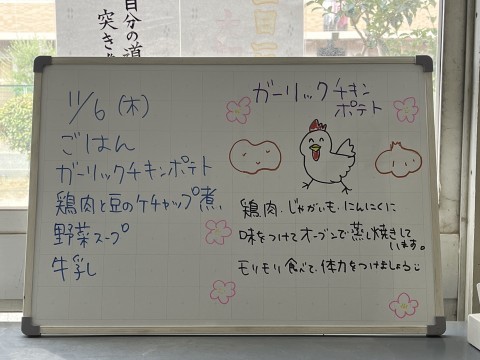 自分の道
突き
11/6 (木)
ごはん
ガーリックチキンポテト
鶏肉と豆のケチャップ煮
野菜スープ
牛乳し
ガーリックチキン
ポテト
鶏肉、じゃがいも、にんにくに
味をつけてオーブンで蒸し焼きして
います。
モリモリ食べて、体力をつけましょう